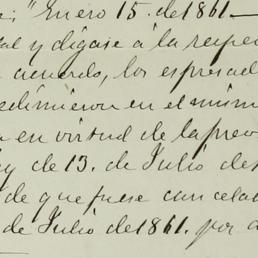 "Enero 15. de 1861.—
y dígase á la
acuerdo, los espresad
en el mism
en virtud de la prev
y de 13. de Julio de
de que fuese cancelad
de Julio de 1861. por